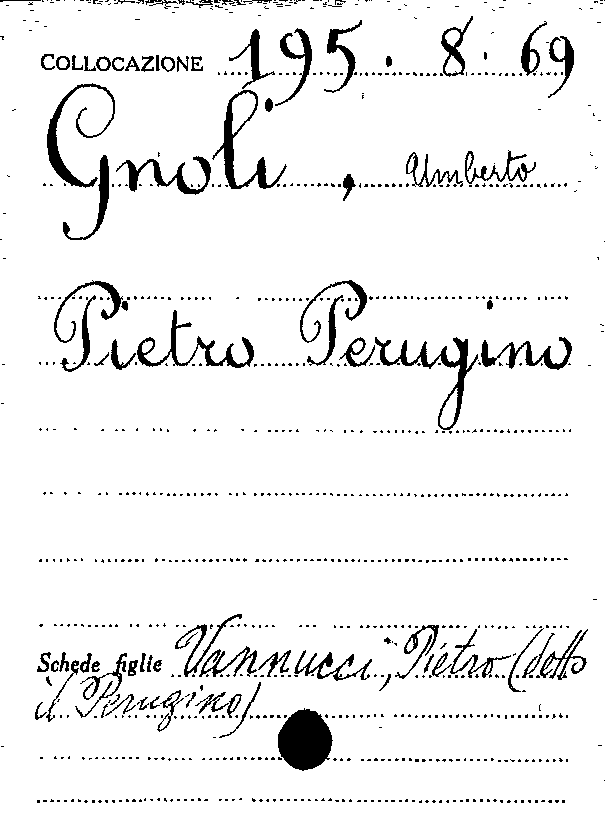 COLLOCAZIONE 195. 8. 69
Gnoli, Umberto
Pietro Perugino
Schede figlie Vannucci, Pietro (detto
il Perugino)